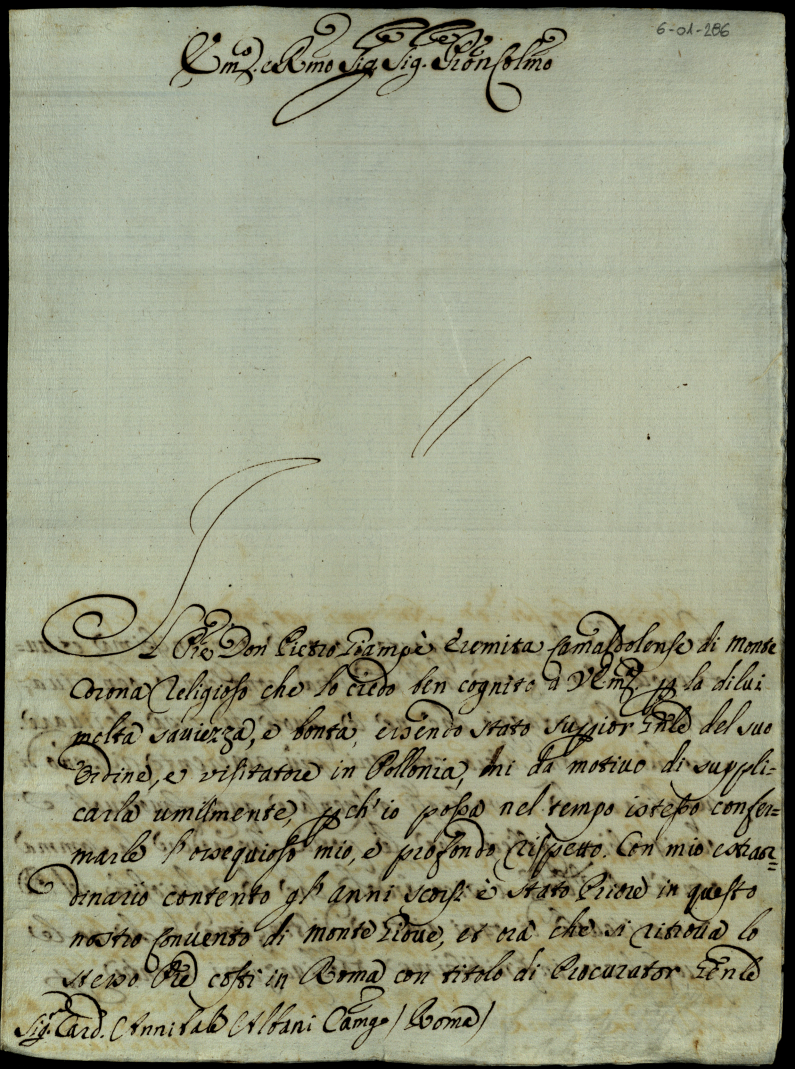 6-01-286
Em.o e Rmo Sig.re Sig. Pron Colmo
Il Pre Don Pietro Giampè Eremita Camaldolense di Monte
Corona Religioso che lo credo ben cognito a VEm.za pp la di lui
molta saviezza, e bontà, essendo stato suppior Gnle del suo
Ordine, e visitatore in Pollonia, mi dà motivo di suppli=
carla umilmente, pp ch'io possa nel tempo istesso confer=
marle l'ossequioso mio, e profondo rispetto. Con mio estraor=
dinario contento gl'anni scorsi è stato Priore in questo
nostro Convento di Monte Giove, et ora che si ritrova lo
stesso Pre costì in Roma con titolo di Procurator Gnle
Sig.r Card. Annibale Albani Camgo / Roma /